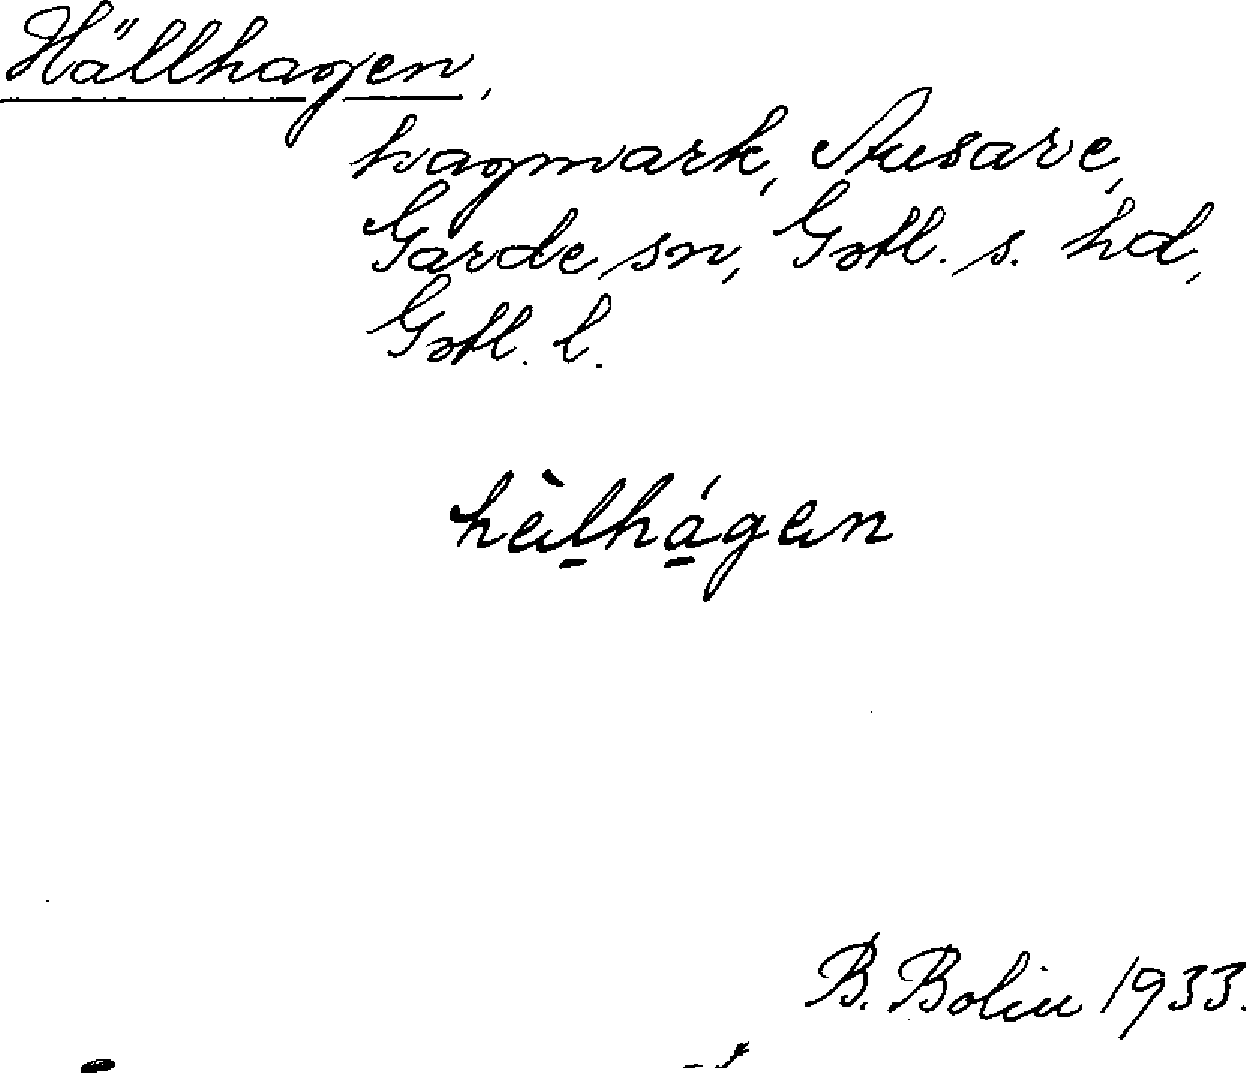 Hällhagen,
hagmark, Ausarve,
Garde sn, Gotl. s. hd,
Gotl. l.
hèlhágen
B. Bolin 1933.